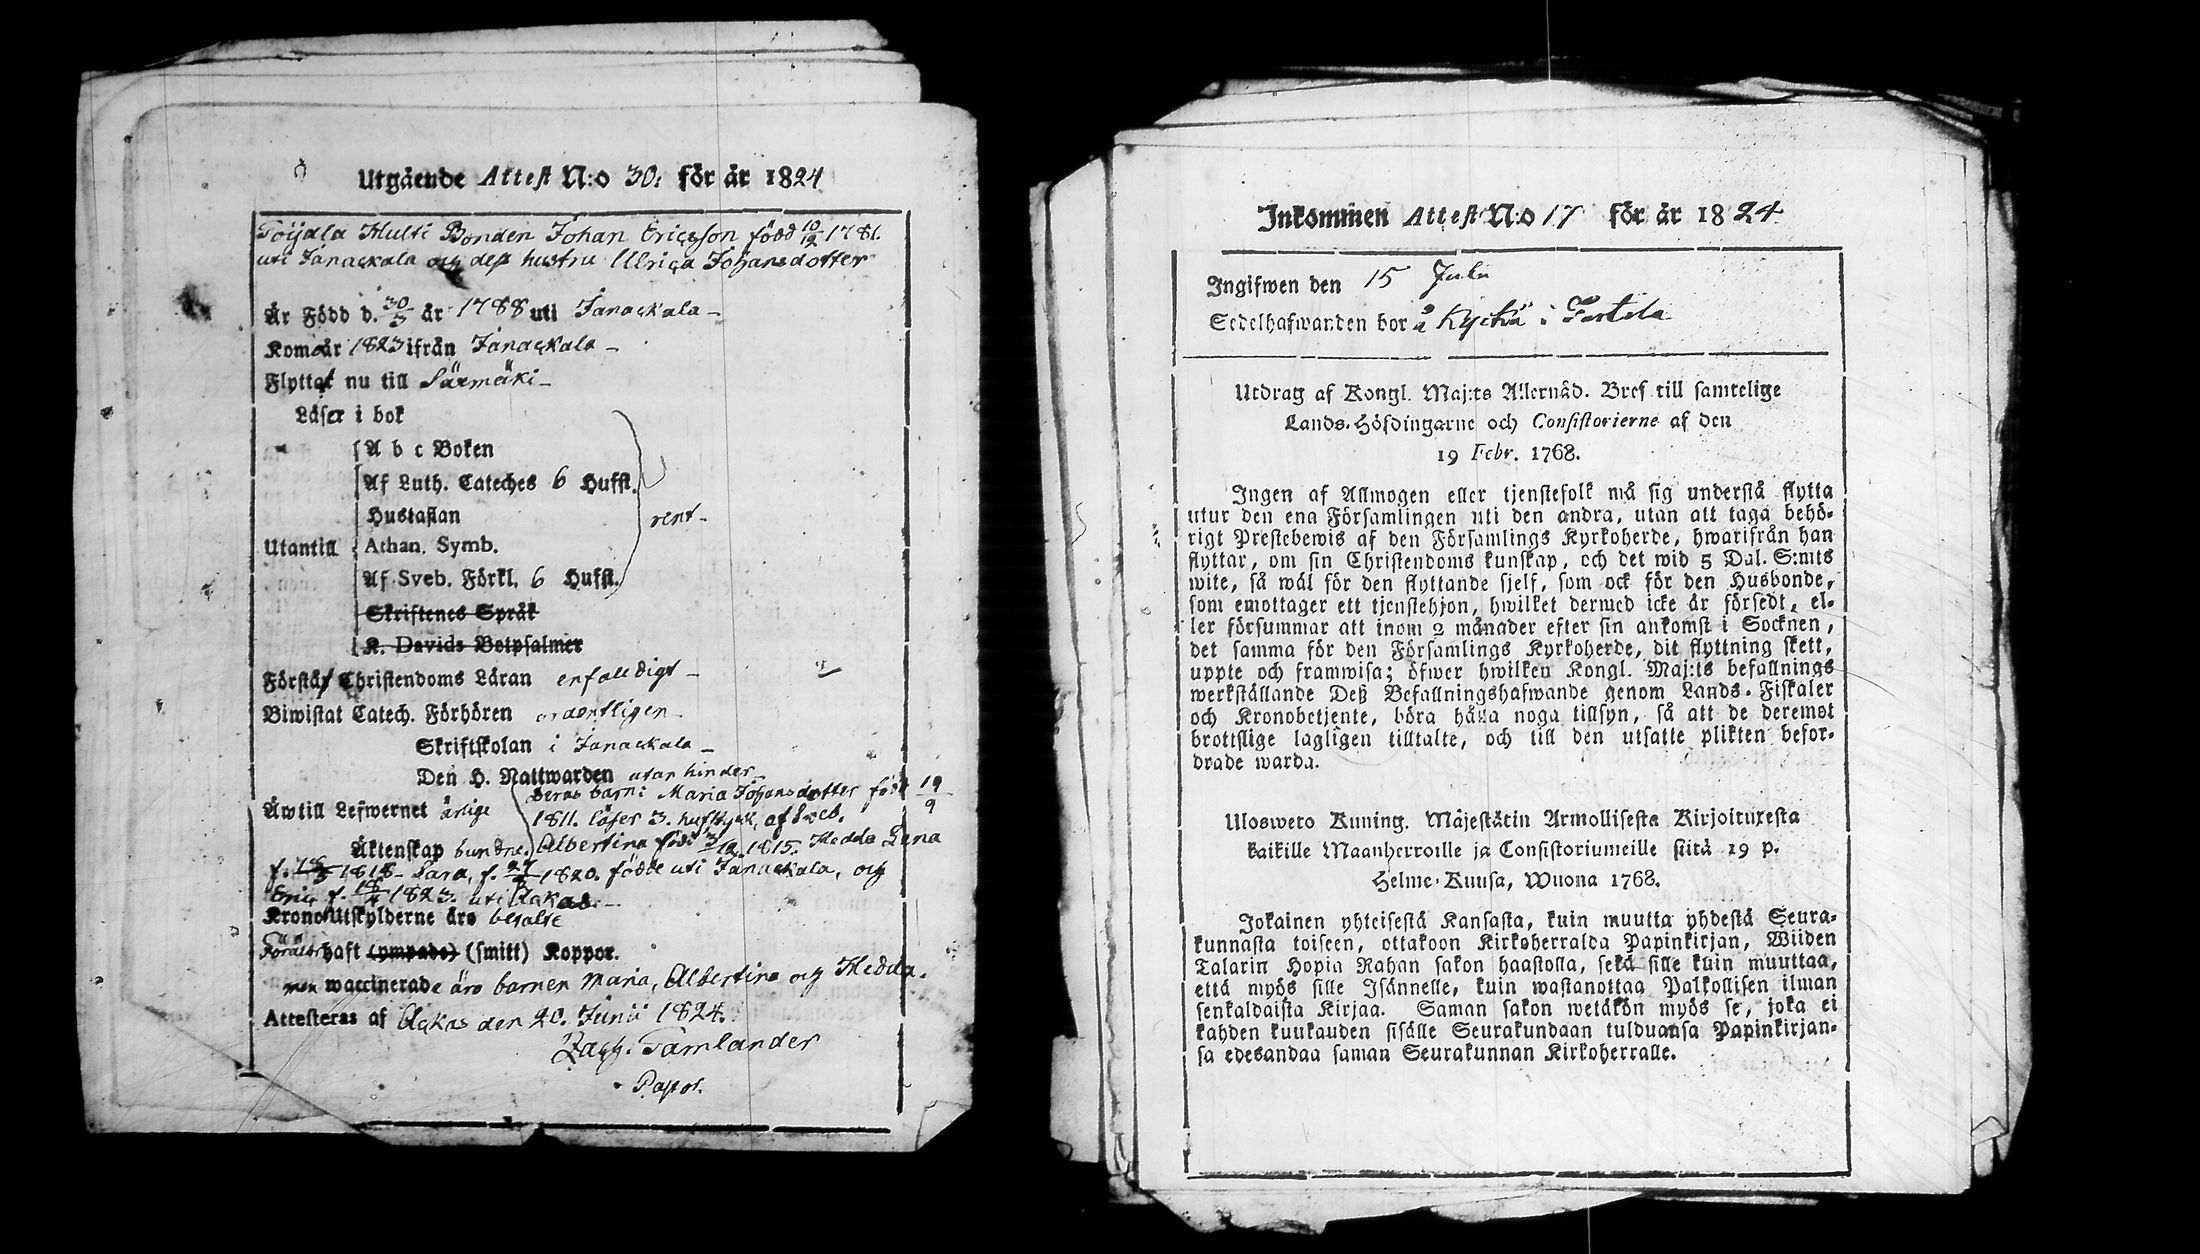 Utgående Attest N:o 30. för år 1824
Toijala Hulti Bonden Johan Ericsson född 10/12 1781.
uti Janackala och dess hustru Ulrica Johansdotter
Är Född d. 30/5 år 1788 uti Janackala –
Kom år 1823 ifrån Janackala –
Flyttat nu till Särmäki –
Läser i bok
A b c Boken
Af Luth. Cateches 6 Hufst.
Hustaflan
rent –
Utantill Athan. Symb.
Af Sveb. Förkl. 6 Hufst.
Skriftenes Språk
K. Davids Botpsalmer
Förstår Christendoms Läran enfalldigt –
Biwistat Catech. Förhören ordentligen –
Skriftskolan i Janackala –
Den H. Nattwarden utan hinder –
deras barn: Maria Johansdotter född 19/9
Äro till Lefwernet ärlige
1811. läser 3. hufstyck. af Sveb.
Äktenskap bundne. Albertina född 3/12 1815. Hedda Lena
f. 1818 – Sara, f. 27 1820. födde uti Janackala, och
Eric f. 18/4 1823. uti Ackas. –
Krono Utskylderne äro betalte
haft (ympade) (smitt) Koppor.
men waccinerade äro barnen Maria, Albertina och Hedda.
Attesteras af Ackas den 20. Junii 1824.
Zach. Tamlander
Pastor.
Inkommen Attest N:o 17 för år 1824
Ingifwen den 15 Julii
Sedelhafwanden bor å Kyckä i
Utdrag af Kongl. Maj:ts Allernåd. Bref till samtelige
Lands-Höfdingarne och Consistorierne af den
19 Febr. 1768.
Ingen af Allmogen eller tjenstefolk må sig understå flytta
utur den ena Församlingen uti den andra, utan att taga behö-
rigt Prestebewis af den Församlings Kyrkoherde, hwarifrån han
flyttar, om sin Christendoms kunskap, och det wid 5 Dal. S:mts
wite, så wäl för den flyttande sjelf, som ock för den Husbonde,
som emottager ett tjenstehjon, hwilket dermed icke är försedt, el-
ler försummar att inom 2 månader efter sin ankomst i Socknen,
det samma för den Församlings Kyrkoherde, dit flyttning skett,
uppte och framwisa; öfwer hwilken Kongl. Maj:ts befallnings
werkställande Deß Befallningshafwande genom Lands-Fiskaler
och Kronobetjente, böra hålla noga tillsyn, så att de deremot
brottslige lagligen tilltalte, och till den utsatte plikten befor-
drade warda.
Ulosweto Kuning. Majestätin Armollisesta Kirjoituxesta
kaikille Maanherroille ja Consistoriumeille siitä 19 p.
Helme-Kuusa, Wuona 1768.
Jokainen yhteisestä Kansasta, kuin muutta yhdestä Seura-
kunnasta toiseen, ottakoon Kirkoherralda Papinkirjan, Wiiden
Talarin Hopia Rahan sakon haastolla, sekä sille kuin muuttaa,
että myös sille Isännelle, kuin wastanottaa Palkollisen ilman
senkaldaista Kirjaa. Saman sakon wetäkön myös se, joka ei
kahden kuukauden sisälle Seurakundaan tulduansa Papinkirjan-
sa edesandaa saman Seurakunnan Kirkoherralle.